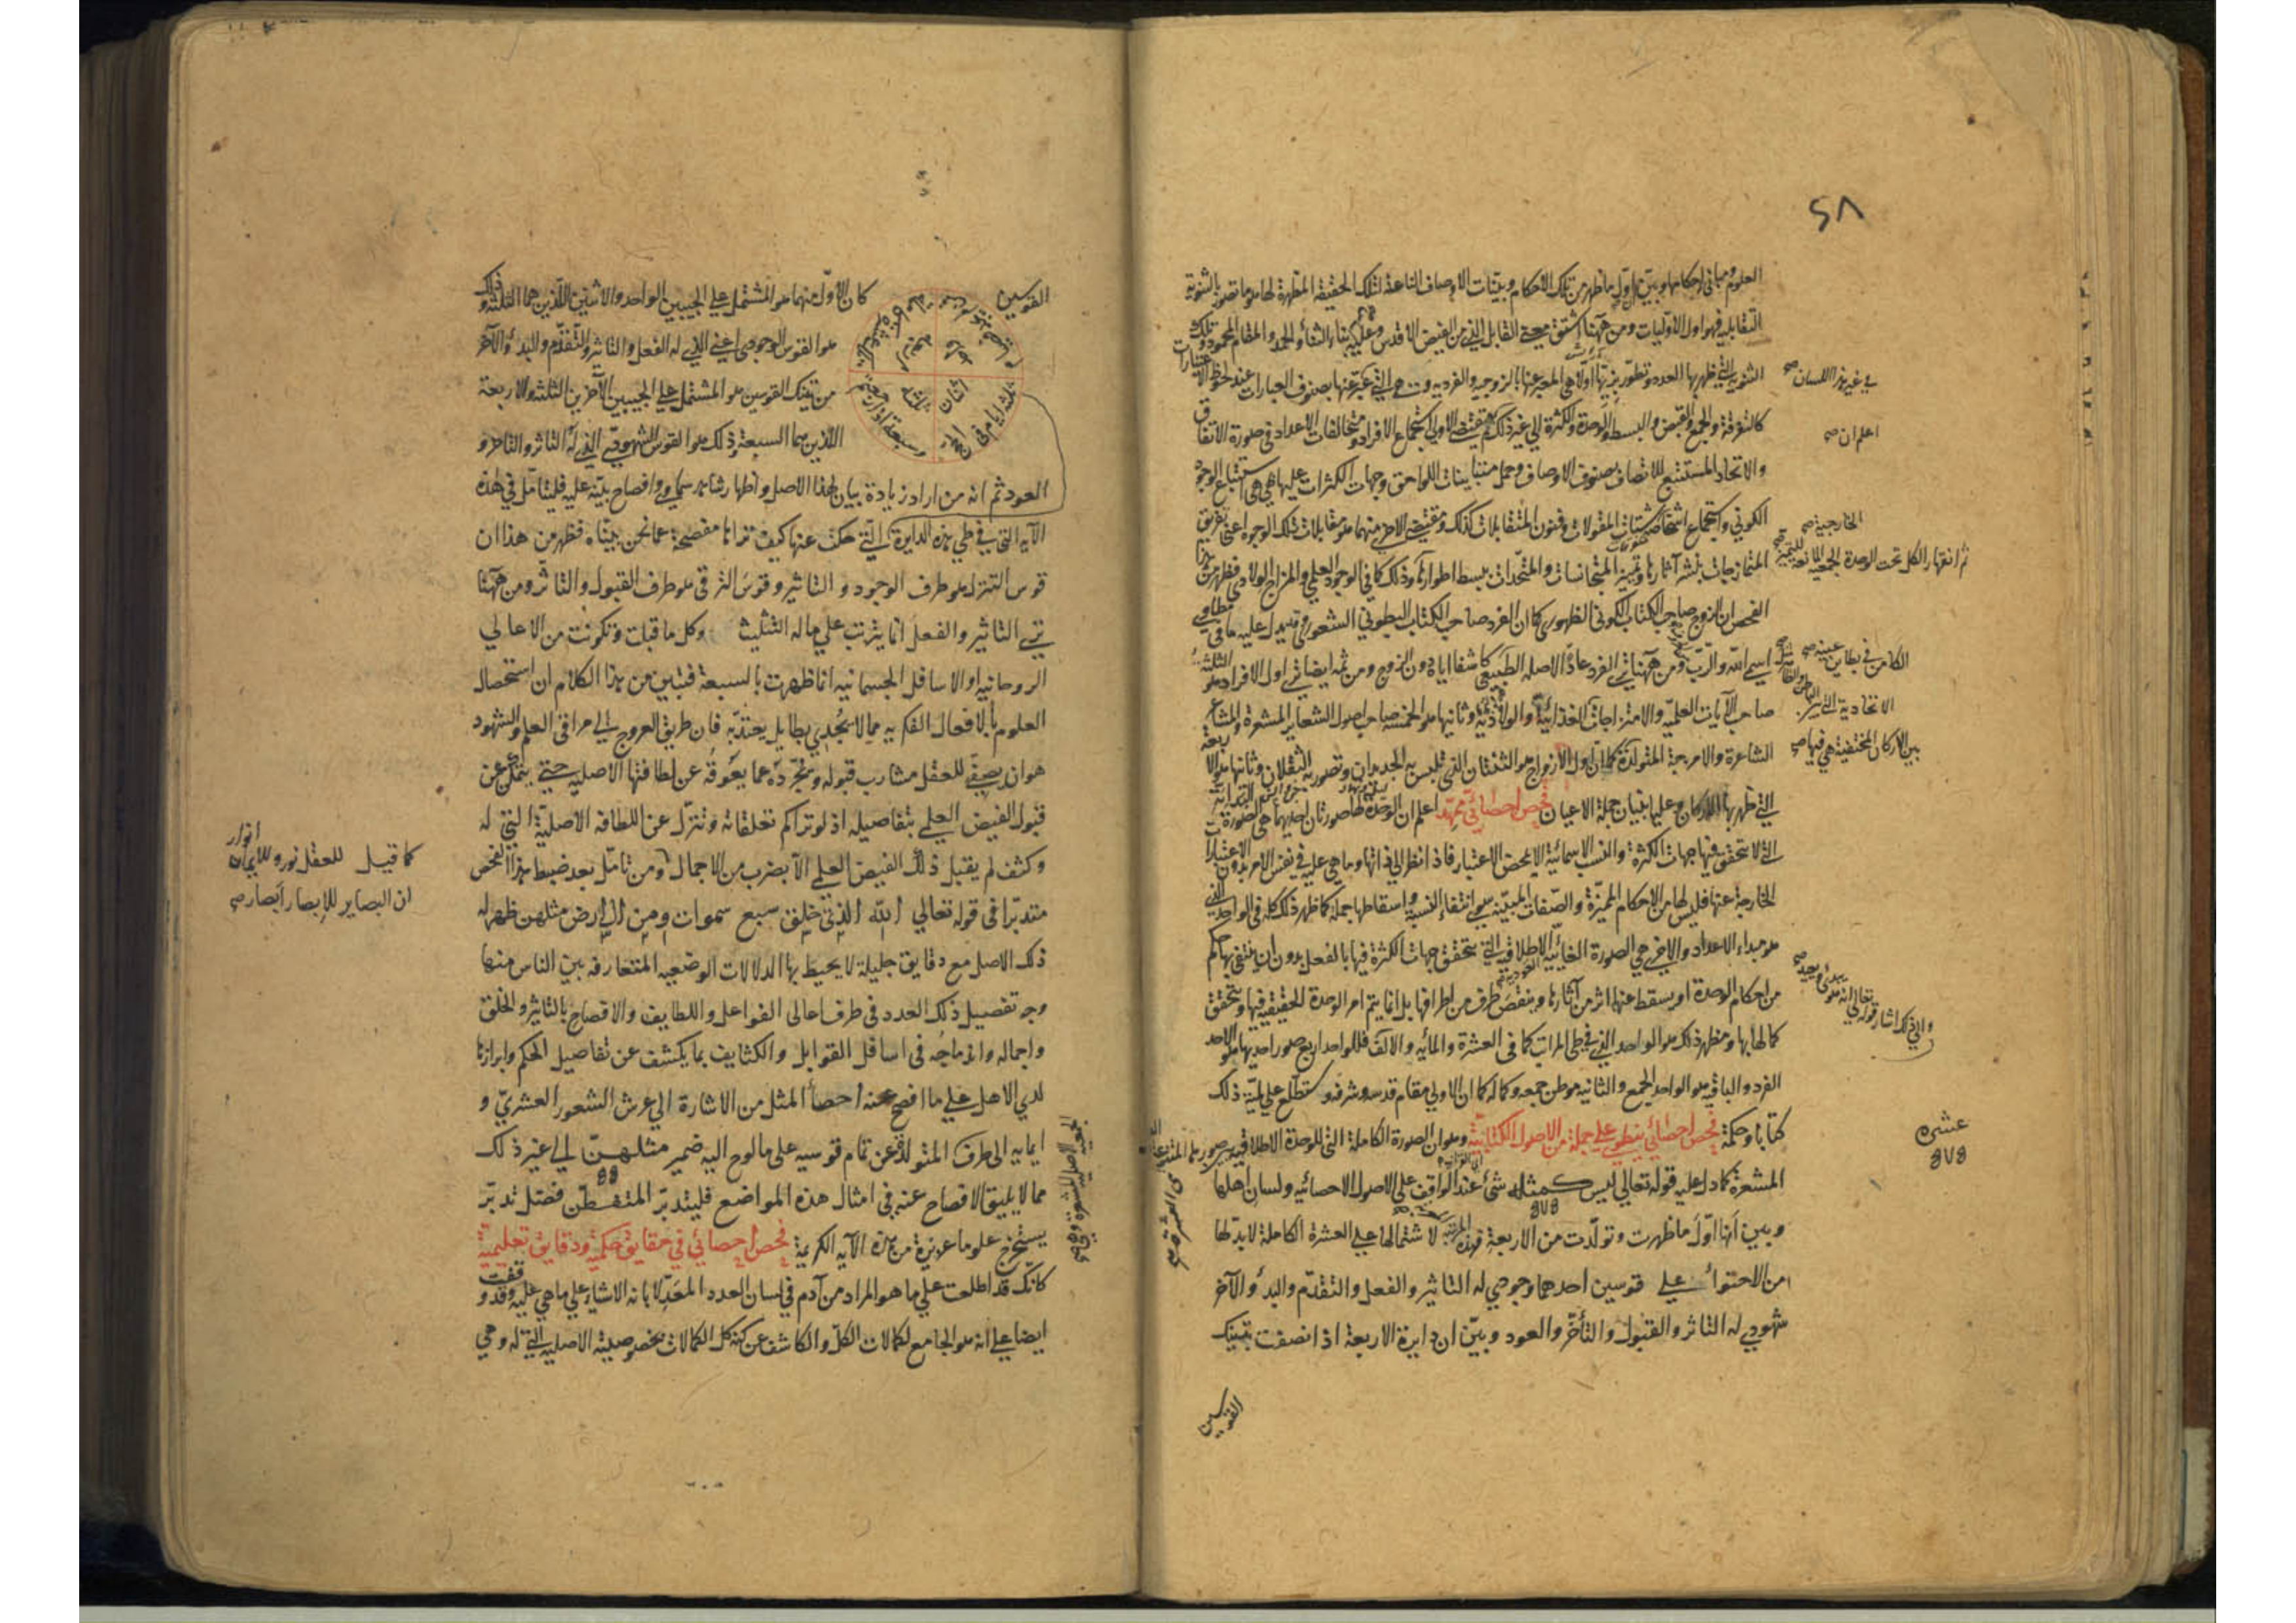 ٢٨
العلوم ومباني احكامها وبين ان اول ما ظهر من تلك الاحكام وبينات الاوصاف الناعتة لتلك الحقيقة المظهرة لها هو ما تصور بالثنوية
التقابلية فهو اول الاوليات ومن ههنا اشتق معنى القابل الذي من الفيض الاقدس وعليه بناء الثناء والحمد والمقام المحمود وتلك
الثنوية التي ظهر بها العدد وتطور بزيها اولا هي المعبر عنها بالزوجية والفردية وهي التي عبر عنها بصنوف العبارات عند لحوظ الاعتبارات
في غير هذا اللسان صح
كالتفرقة والجمع والقبض والبسط والوحدة والكثرة الى غير ذلك مقتضى الاولى استجماع الافراد متخالفات الاعداد في صورة الاتفاق
اعلم ان صح
والاتحاد المستتبع للاتصاف بصنوف الاوصاف وحمل متباينات اللواحق وجهات الكثرات عليها هي هي استتباع الوجود
الكوني واستجماع اشخاص شتات المقولات وفنون المتقابلات كذلك ومقتضى الاخرى منهما هو مقابلات تلك الوجوه اعني تفريق
الخارجية صح
المتمازجات بنشر آثارها وتمييز المتجانسات والمتحدات ببسط اطوارها وذلك كما في الوجود العلمي والمزاج الولادي فظهر من هذا
ثم انقهار الكل تحت الوحدة الجمعية المانعة للتميز صح
الفحص ان الزوج صاحب الكتاب الكوني الظهوري كما ان الفرد صاحب الكتاب البطوني الشعوري وقد يدل عليه ما في مطاوي
اسم الله والرب ومن ههنا ترى الفرد عادا لاصله الطبيعي كاشفا اياه دون الزوج ومن ثمه ايضا ترى اول الافراد هو الثلثة
الكامن في بطاين عينيه صح
صاحب الآيات العلمية والامتزاجات الغذائية والولادية وثانيها هو الخمسة صاحب اصول الشعاير المشعرة والمشاعر
الاتحادية التي
الشاعرة والامزجة المتولدة كما ان اول الازواج هو الاثنان الذي تلبس به الجديدان وتصور به الثقلان وثانيها هو الاربعة
بين الاركان المختفية هي فيها صح
التي ظهر بها الاركان وعليها بنيان جملة الاعيان فحص احصائي ممهد اعلم ان الوحدة لها صورتان احديهما هي الصورة
التي لا يتحقق فيها جهات الكثرة والنسب الاسمائية الا بمحض الاعتبار فاذا نظر الى ذاتها وما هي عليه في نفس الامر بدون الاعتبارات
الخارجة عنها فليس لها من الاحكام المميزة والصفات المبينة سوى انتفاء النسبة واسقاطها جملة كما ظهر ذلك كله في الواحد الذي
هو مبداء الاعداد والاخرى هي الصورة الغائية الاطلاقية التي يتحقق جهات الكثرة فيها بالفعل بدون ان ينتفي بها حكم
من احكام الوحدة او يسقط عنها اثر من آثارها وينقص طرف من اطرافها بل انما يتم امر الوحدة الحقيقية فيها ويتحقق
والى ذلك اشار قوله تعالى انه هو يبدئ ويعيد صح
كمالها بها ومظهر ذلك هو الواحد الذي في طي المراتب كما في العشرة والمائة والالف فللواحد اربع صور احديها هو الاحد
الفرد والباقي هو الواحد الجمع والثانية موطن جمعه وكماله كما ان الاولى مقام قدسه وشرفه وستطلع على لمية ذلك
كتابا وحكمة فحص احصائي ينطوي على جملة من الاصول الكتابية وهو ان الصورة الكاملة التي للوحدة الاطلاقية
عشرة
٥٧٥
المشعرة كما دل عليه قوله تعالى ليس كمثله شئ عند الواقف على الاصول الاحصائية ولسان اهلها
٥٧٥
وبين انها اول ما ظهرت وتولدت من الاربعة فهذه المرتبة لاشتمالها على العشرة الكاملة لا بد لها
من الاحتواء على قوسين احدهما وجودي له التاثير والفعل والتقدم والبدء والآخر
شهودي له التاثر والقبول والتأخر والعود وبين ان دايرة الاربعة اذا نصفت بتينك
القوسين
القوسين كان الاول منهما هو المشتمل على الجيبين الواحد والاثنين اللذين هما الثلثة وذلك
هو القوس الوجودي اعني الذي له الفعل والتاثير والتقدم والبدء والآخر
من تينك القوسين هو المشتمل على الجيبين الآخرين الثلثة والاربعة
اثنان
ثلثة
ثلثة ايام في الحج
وسبعة اذا رجعتم
اللذين هما السبعة وذلك هو القوس الشهودي الذي له التاثر والتاخر و
العود ثم انه من اراد زيادة بيان لهذا الاصل واظهار شاهد سماوي وافصاح بينة عليه فليتامل في هذه
الآية التي في طي هذه الدايرة التي حكت عنها كيف تراها مفصحة عما نحن بيناه فظهر من هذا ان
قوس التنزل هو طرف الوجود والتاثير وقوس الترقي هو طرف القبول والتاثر ومن ههنا
ترى التاثير والفعل انما يترتب على ما له التثليث وكل ما قبلت وتكونت من الاعالي
الروحانية او الاسافل الجسمانية انما ظهرت بالسبعة فتبين من هذا الكلام ان استحصال
العلوم بالافعال الفكرية مما لا يجدي بطايل يعتد به فان طريق العروج الى مراقي العلم والشهود
هو ان يصفى للعقل مشارب قبوله ويجرده عما يعوقه عن لطافتها الاصلية حتى يتمكن عن
قبول الفيض العلمي بتفاصيله اذ لو تراكم تعلقاته وتنزل عن اللطافة الاصلية التي له
وكثف لم يقبل ذلك الفيض العلمي الا بضرب من الاجمال ومن تامل بعد ضبط هذا الفحص
كما قيل للعقل نور وللايمان انوار
ان البصاير للابصار ابصار صح
متدبرا في قوله تعالى الله الذي خلق سبع سموات ومن الارض مثلهن ظهر له
ذلك الاصل مع دقايق جليلة لا يحيط بها الدلالات الوضعية المتعارفة بين الناس منها
وجه تفصيل ذلك العدد في طرف اعالي الفواعل واللطايف والافصاح بالتاثير والخلق
واجماله واندماجه في اسافل القوابل والكثايف بما يكشف عن تفاصيل الحكم وابرازها
لدى الاهل على ما افصح عنه احصأ المثل من الاشارة الى عرش الشعور العشري و
ايمايه الى طرف المتولد عن تمام قوسيه على ما لوح اليه ضمير مثلهن الى غير ذلك
مما لا يليق الافصاح عنه في امثال هذه المواضع فليتدبر المتفطن فضل تدبر
يستخرج علوما عزيزة من هذه الآية الكريمة فحص احصائي في حقايق حكمية ودقايق تعليمية
كانك قد اطلعت على ما هو المراد من آدم في لسان العدد المعد لابانة الاشياء على ما هي عليه وقد وقفت
ايضا على انه هو الجامع لكمالات الكل والكاشف عن كنه كل الكمالات بخصوصيته الاصلية التي له وهي